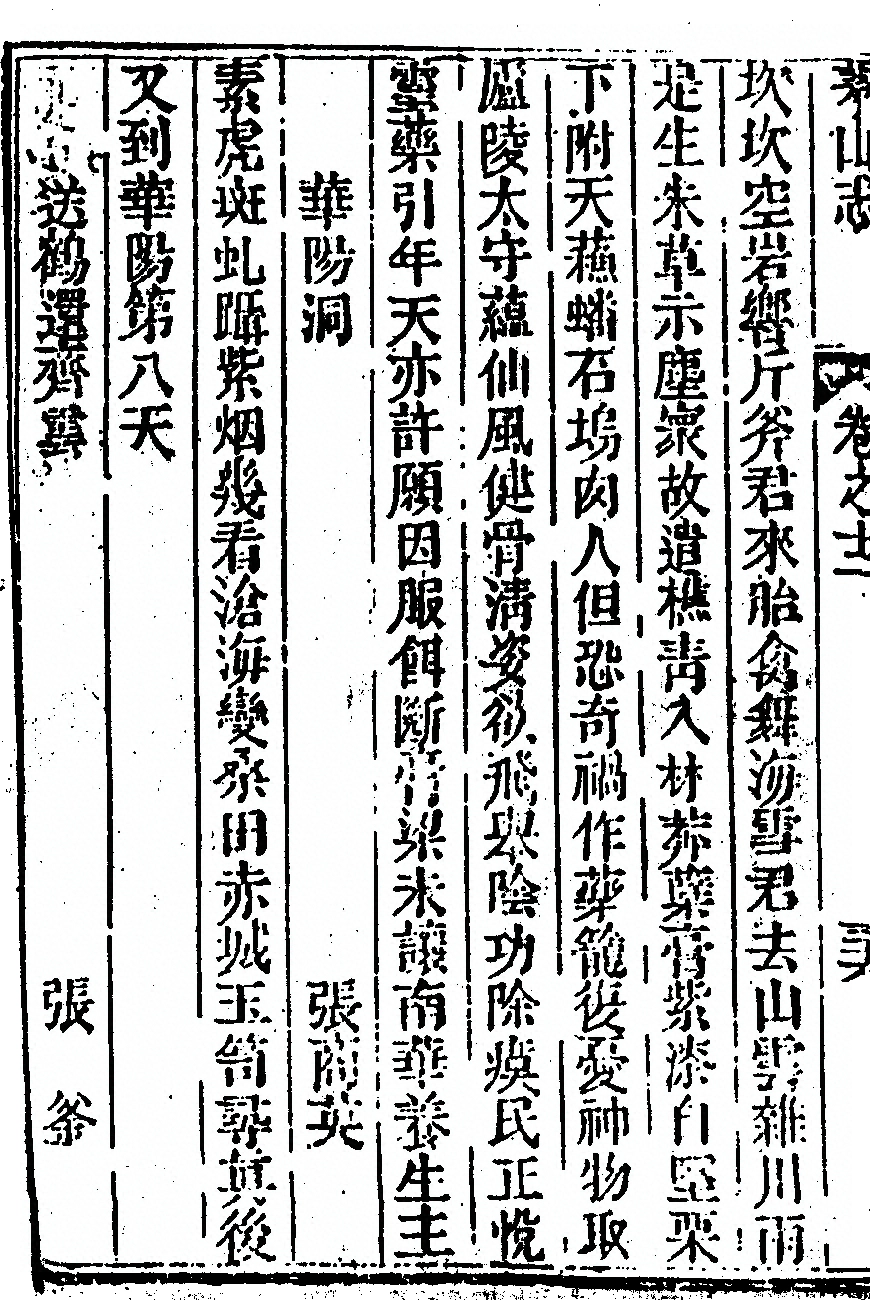 山志 卷之十二
坎坎空岩響斤斧君來胎禽舞海雪君去山雲雜川雨
是生朱草示塵寰故遣樵青入林莽藥膏紫漆白堅栗
下附天蘓蟠石塢肉人但恐奇禍作藥籠復憂神物取
廬陵太守蘊仙風健骨清姿欲飛舉陰功除瘼民正悅
靈藥引年天亦許願因服餌斷膏粱未讓南華養生主
華陽洞 張商英
素虎斑虬躡紫烟幾看滄海變桑田赤城玉笥尋真後
又到華陽第八天
送鶴還齊雲 張釜